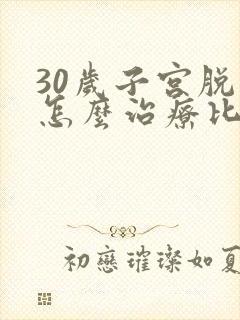 30歲子宮脱
怎麼治療比
初戀璀璨如夏